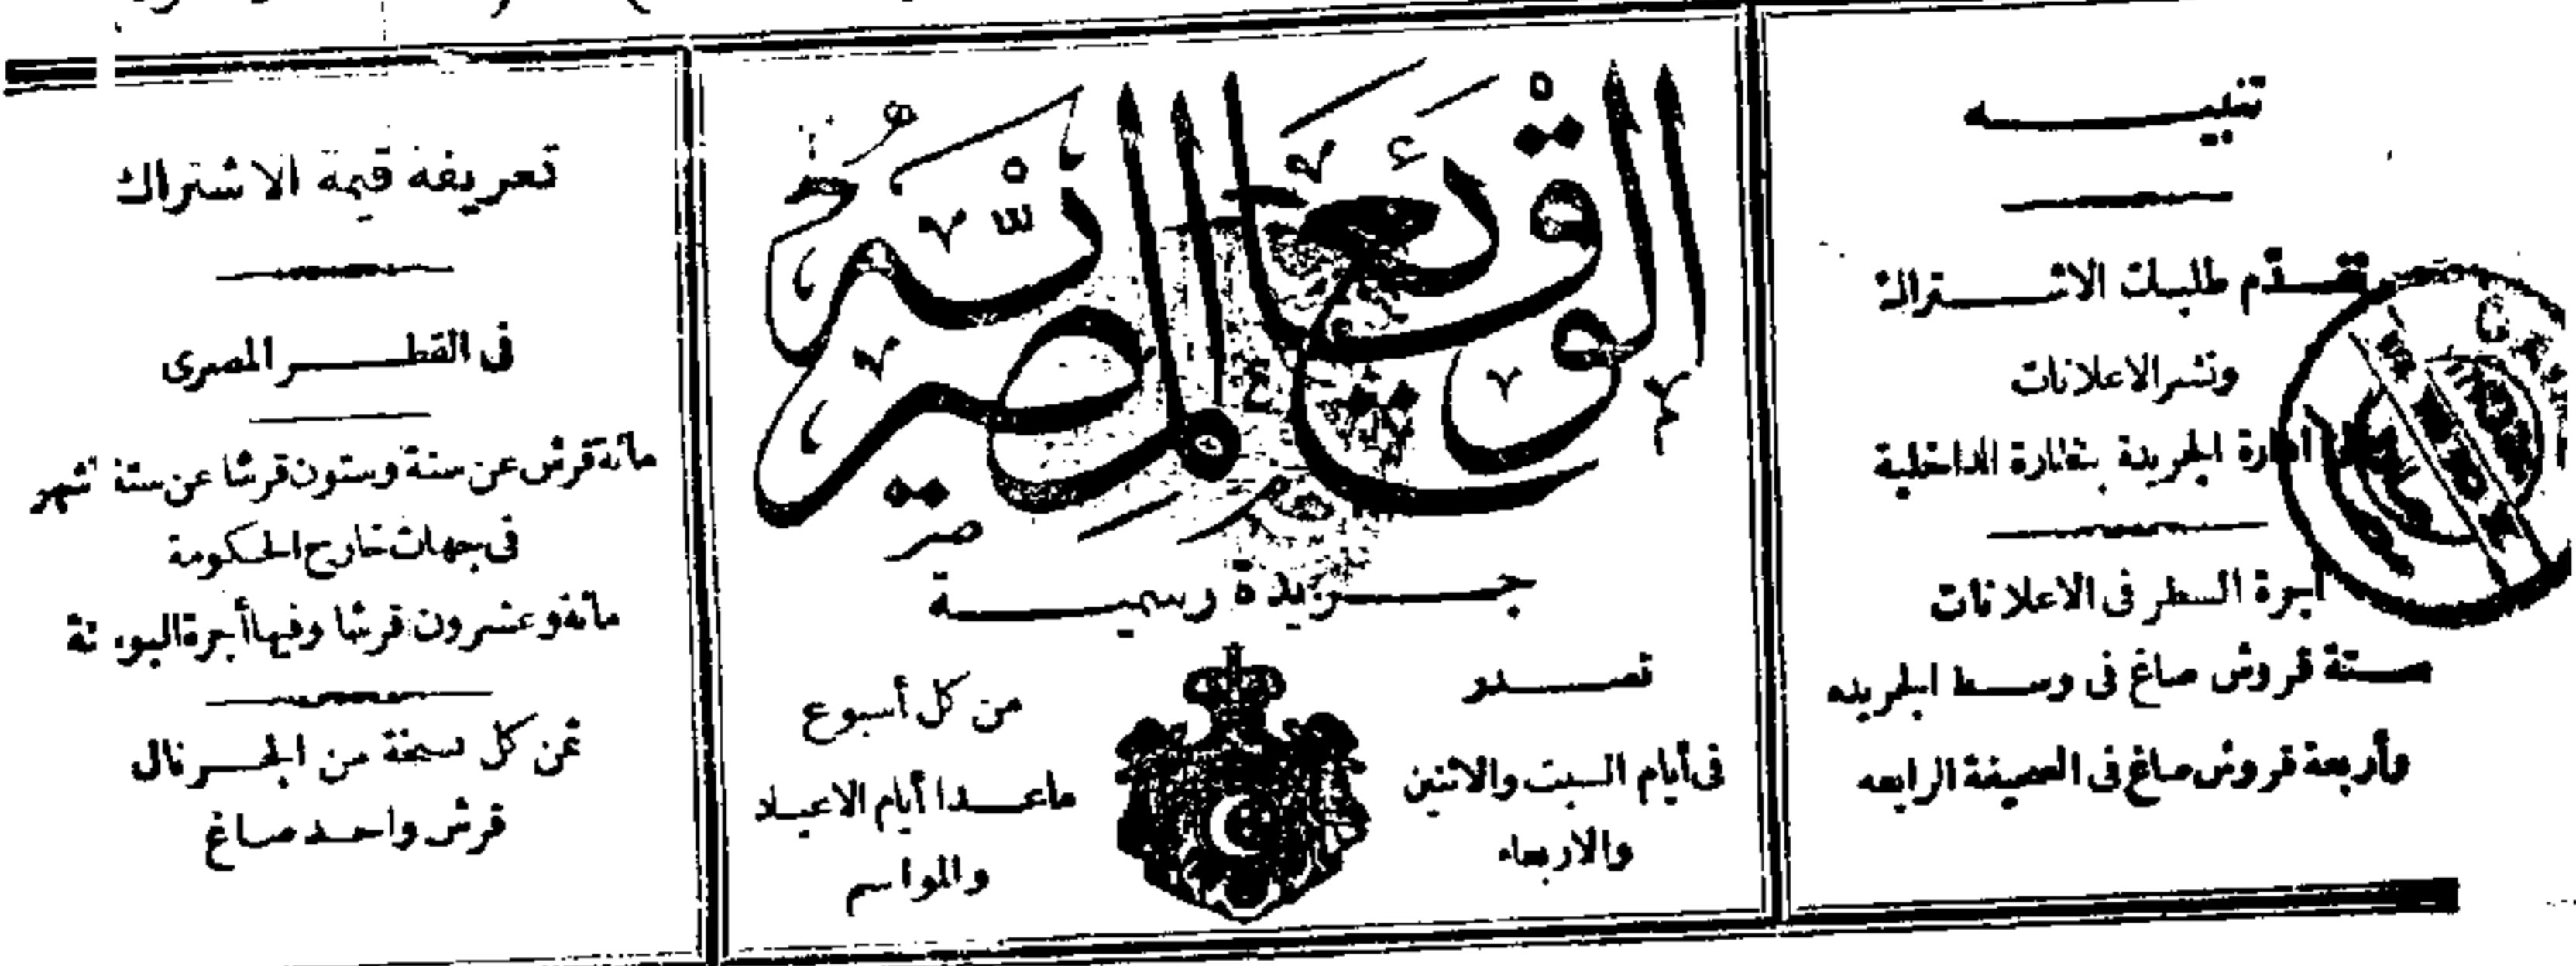 تنبيه
تقدّم طلبات الاشتراك
ونشر الاعلانات
ادارة الجريدة بنظارة الداخلية
أجرة السطر فى الاعلانات
ستة قروش صاغ فى وسط الجريده
وأربعة قروش صاغ فى الصحيفة الرابعه
الوقائع المصرية
جريدة رسمية
تصدر
فى أيام السبت والاثنين
والاربعاء
من كل أسبوع
ماعدا أيام الاعياد
والمواسم
تعريفة قيمة الاشتراك
فى القطر المصرى
مائة قرش عن سنة وستون قرشا عن ستة أشهر
فى جهات خارج الحكومة
مائة وعشرون قرشا وفيها أجرة البوستة
ثمن كل نسخة من الجرنال
قرش واحد صاغ